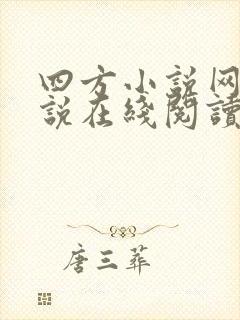 四方小说网
説在綫閱讀
唐三葬